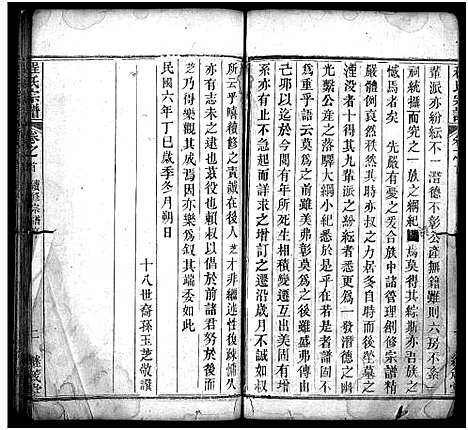 輩派亦紛紜不一潛德不彰公產無籍難則六房不
祠統攝而究之一族之綱紀馬莫得其綜斯亦吾族之
憾焉者矣先嚴有憂之爰合族中諸管理創修宗譜精
嚴體例哀然秩然其時亦叔之力居多而後塋墓之
湮沒者十得其九輩派之紛紜者悉更為一發潛德之幽
光繫公產之落驛大綱小紀悉于乎在若是者譜固不
為重乎語云莫為之前雖美弗彰莫為之後雖盛弗傳
己卯以迄於今閱有年所死生相積變遷互出者
系亦有止居近今之增訂之遷沿歲月不誠大
所云乎嘻續修之責誠在後人芝才非繼述性復疎慵久
亦有志未之逮也幸賴叔以倡於前諸君努于後
芝乃得樂觀其成因亦樂為敘其端委如此
民國六年丁巳歲季冬月朔日
十八世裔孫玉芝敬譔
程氏宗譜
卷之首
續修宗譜